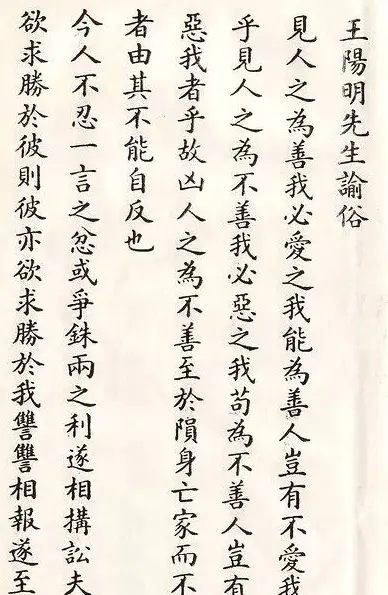 王陽明先生諭俗
見人之為善我必愛之我能為善人豈有不愛我
乎見人之為不善我必惡之我苟為不善人豈有
惡我者乎故凶人之為不善至於隕身亡家而不
者由其不能自反也
今人不忍一言之忿或爭銖兩之利遂相搆訟夫
欲求勝於彼則彼亦欲求勝於我讐讐相報遂至